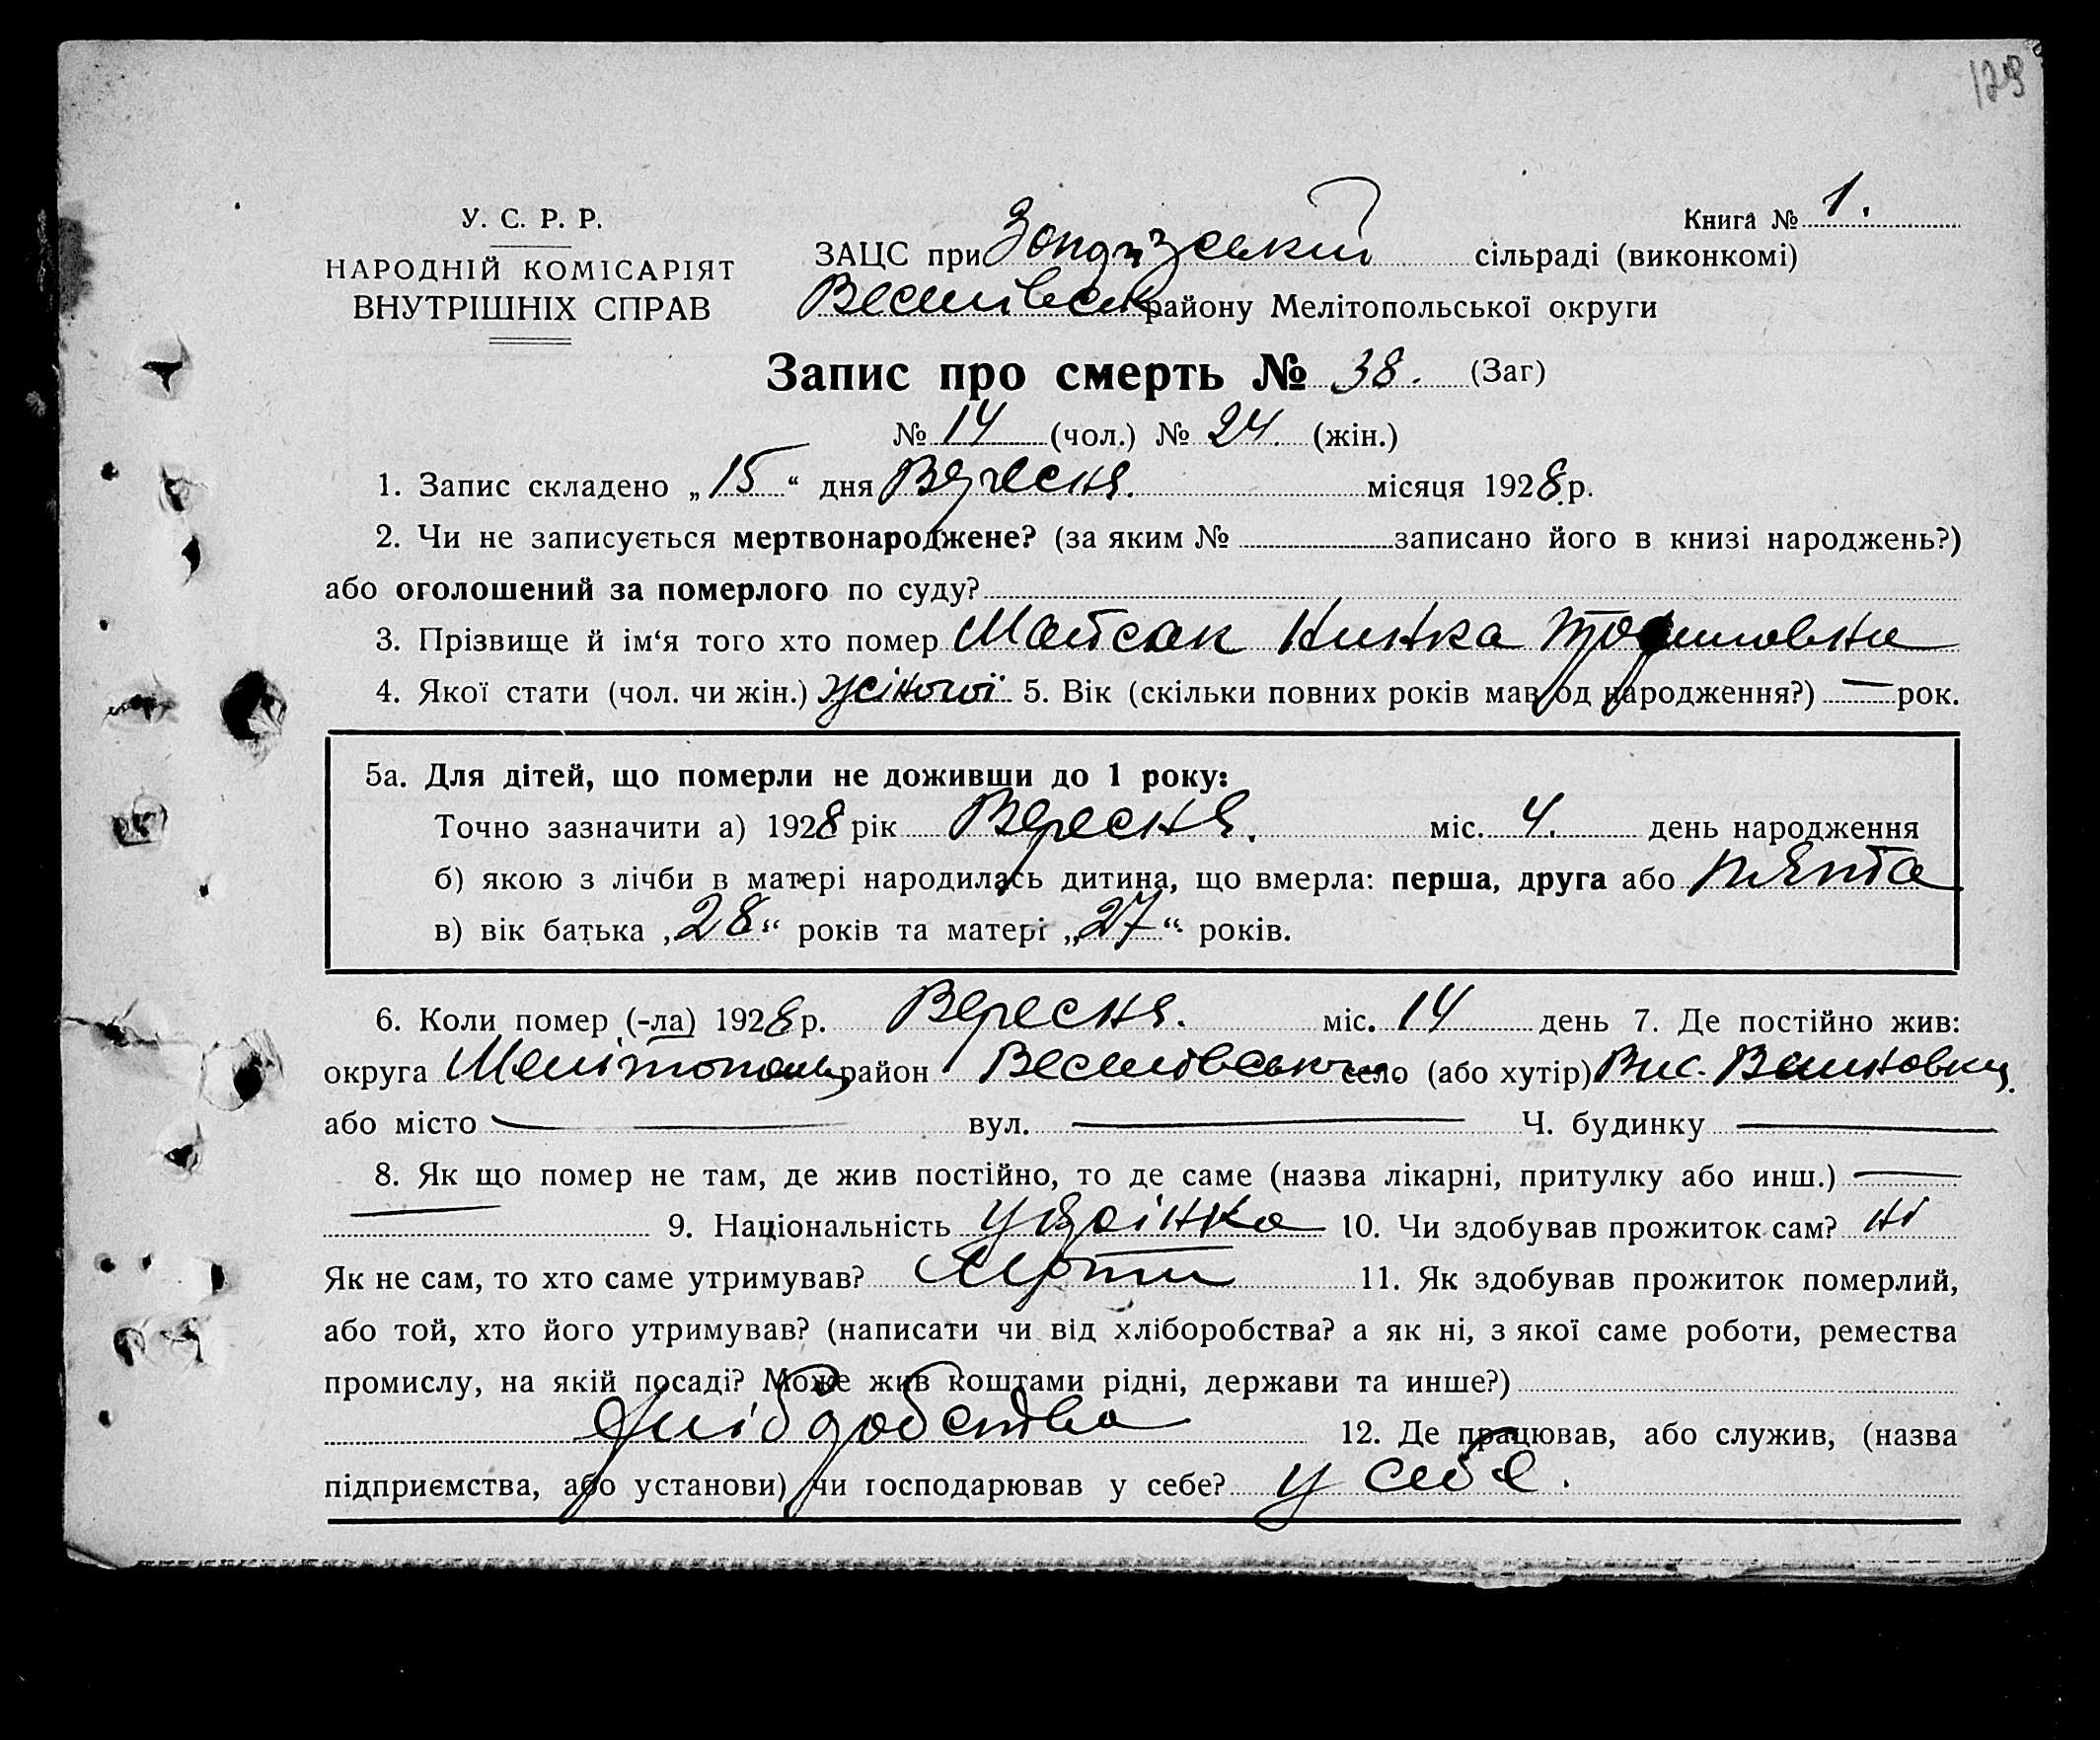 129
У. С. Р. Р.
НАРОДНІЙ КОМІСАРІЯТ
ВНУТРІШНІХ СПРАВ
Книга № 1.
ЗАЦС при сільраді (виконкомі)
Веселівськ району Мелітопольської округи
Запис про смерть № 38. (Заг)
№ 14 (чол.) № 24. (жін.)
1. Запис складено „15“ дня Вересня. місяця 1928 р.
2. Чи не записується мертвонароджене? (за яким № записано його в книзі народжень?)
або оголошений за померлого по суду?
3. Прізвище й ім‘я того хто помер
4. Якої стати (чол. чи жін.) жіночої 5. Вік (скільки повних років мав од народження?) — рок.
5а. Для дітей, що померли не доживши до 1 року:
Точно зазначити а) 1928 рік Вересня. міс. 4. день народження
б) якою з лічби в матері народилась дитина, що вмерла: перша, друга або пʼята
в) вік батька „28“ років та матері „27“ років.
6. Коли помер (-ла) 1928 р. Вересня. міс. 14 день 7. Де постійно жив:
округа Мелітополь район Веселівського село (або хутір) Вис.
або місто — вул. — Ч. будинку —
8. Як що помер не там, де жив постійно, то де саме (назва лікарні, притулку або инш.) —
— 9. Національність 10. Чи здобував прожиток сам? ні
Як не сам, то хто саме утримував? 11. Як здобував прожиток померлий,
або той, хто його утримував? (написати чи від хліборобства? а як ні, з якої саме роботи, ремества
промислу, на якій посаді? Може жив коштами рідні, держави та инше?)
12. Де працював, або служив, (назва
підприємства, або установи) чи господарював у себе? у себе.